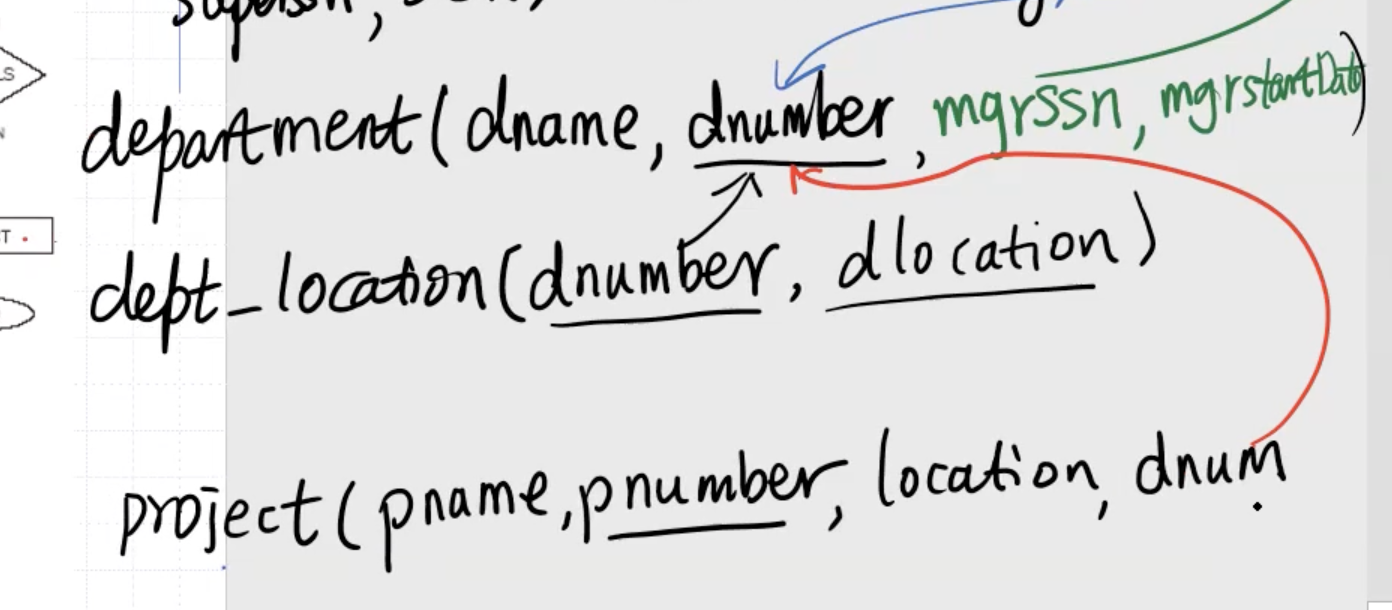 department(dname, dnumber, mgrssn, mgrstartDate)
dept_location(dnumber, dlocation)
project(pname, pnumber, location, dnum